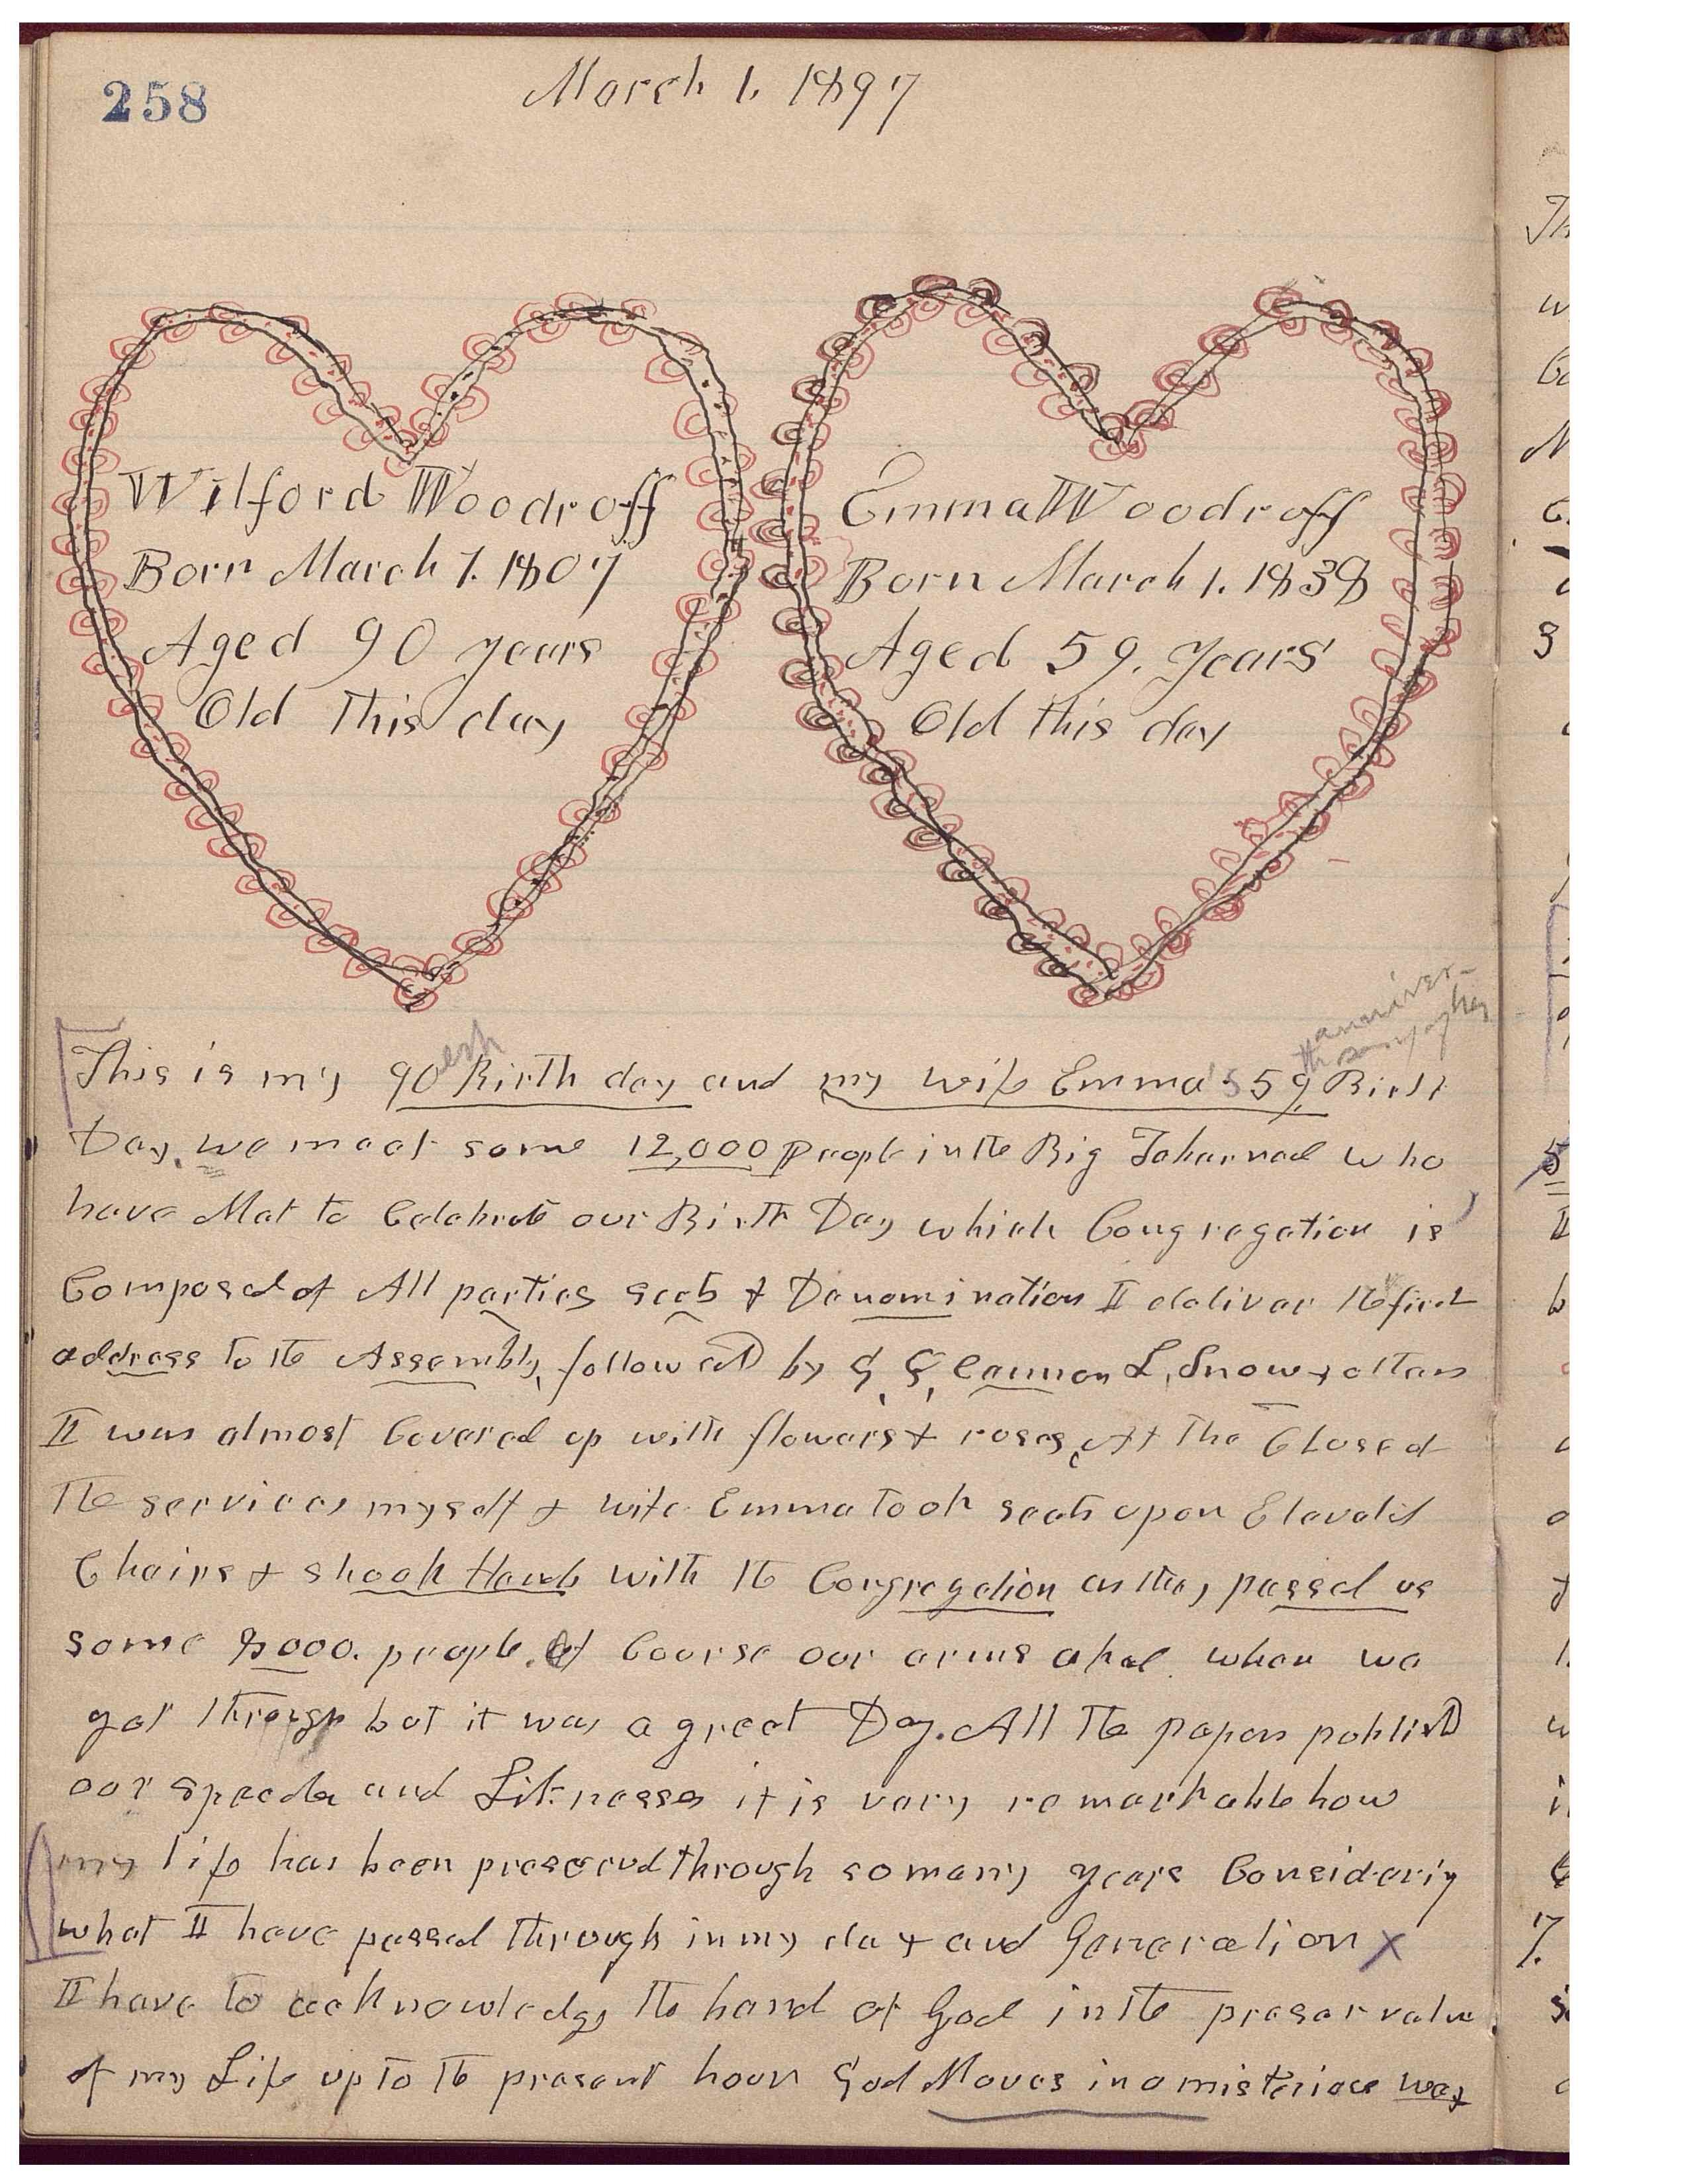 258
March 1, 1897
Wilford Woodruff
Born March 1. 1807
Aged 90 years
Old This day
Emma Woodruff
Born March 1. 1838
Aged 59. Years
Old this day
This is my 90 Birth day and my wife Emma's 59 Birth
Day, we meet some 12,000 People in the Big Tabernacl who
have Met to Celebrate our Birth Day which Congregation is
Composed of All parties sects & Denomination I deliver the first
address to the Assembly, followed by G, Q, Cannon L, Snow & others
I was almost Covered up with flowers & roses, At The Closed
the services myself & wife Emma took seats upon Elevated
Chairs & shook Hands with the Congregation as they passed us
some 000. people. Of Course our arms aked when we
got through but it was a great Day. All the papers publishd
our speeches and Liknesses it is very remarkable how
my life has been preserved through so many years Considering
what I have passed through in my day and Generation X
I have to acknowledge the hand of God in the preservation
of my Life up to the present hour God Moves in a misterious way